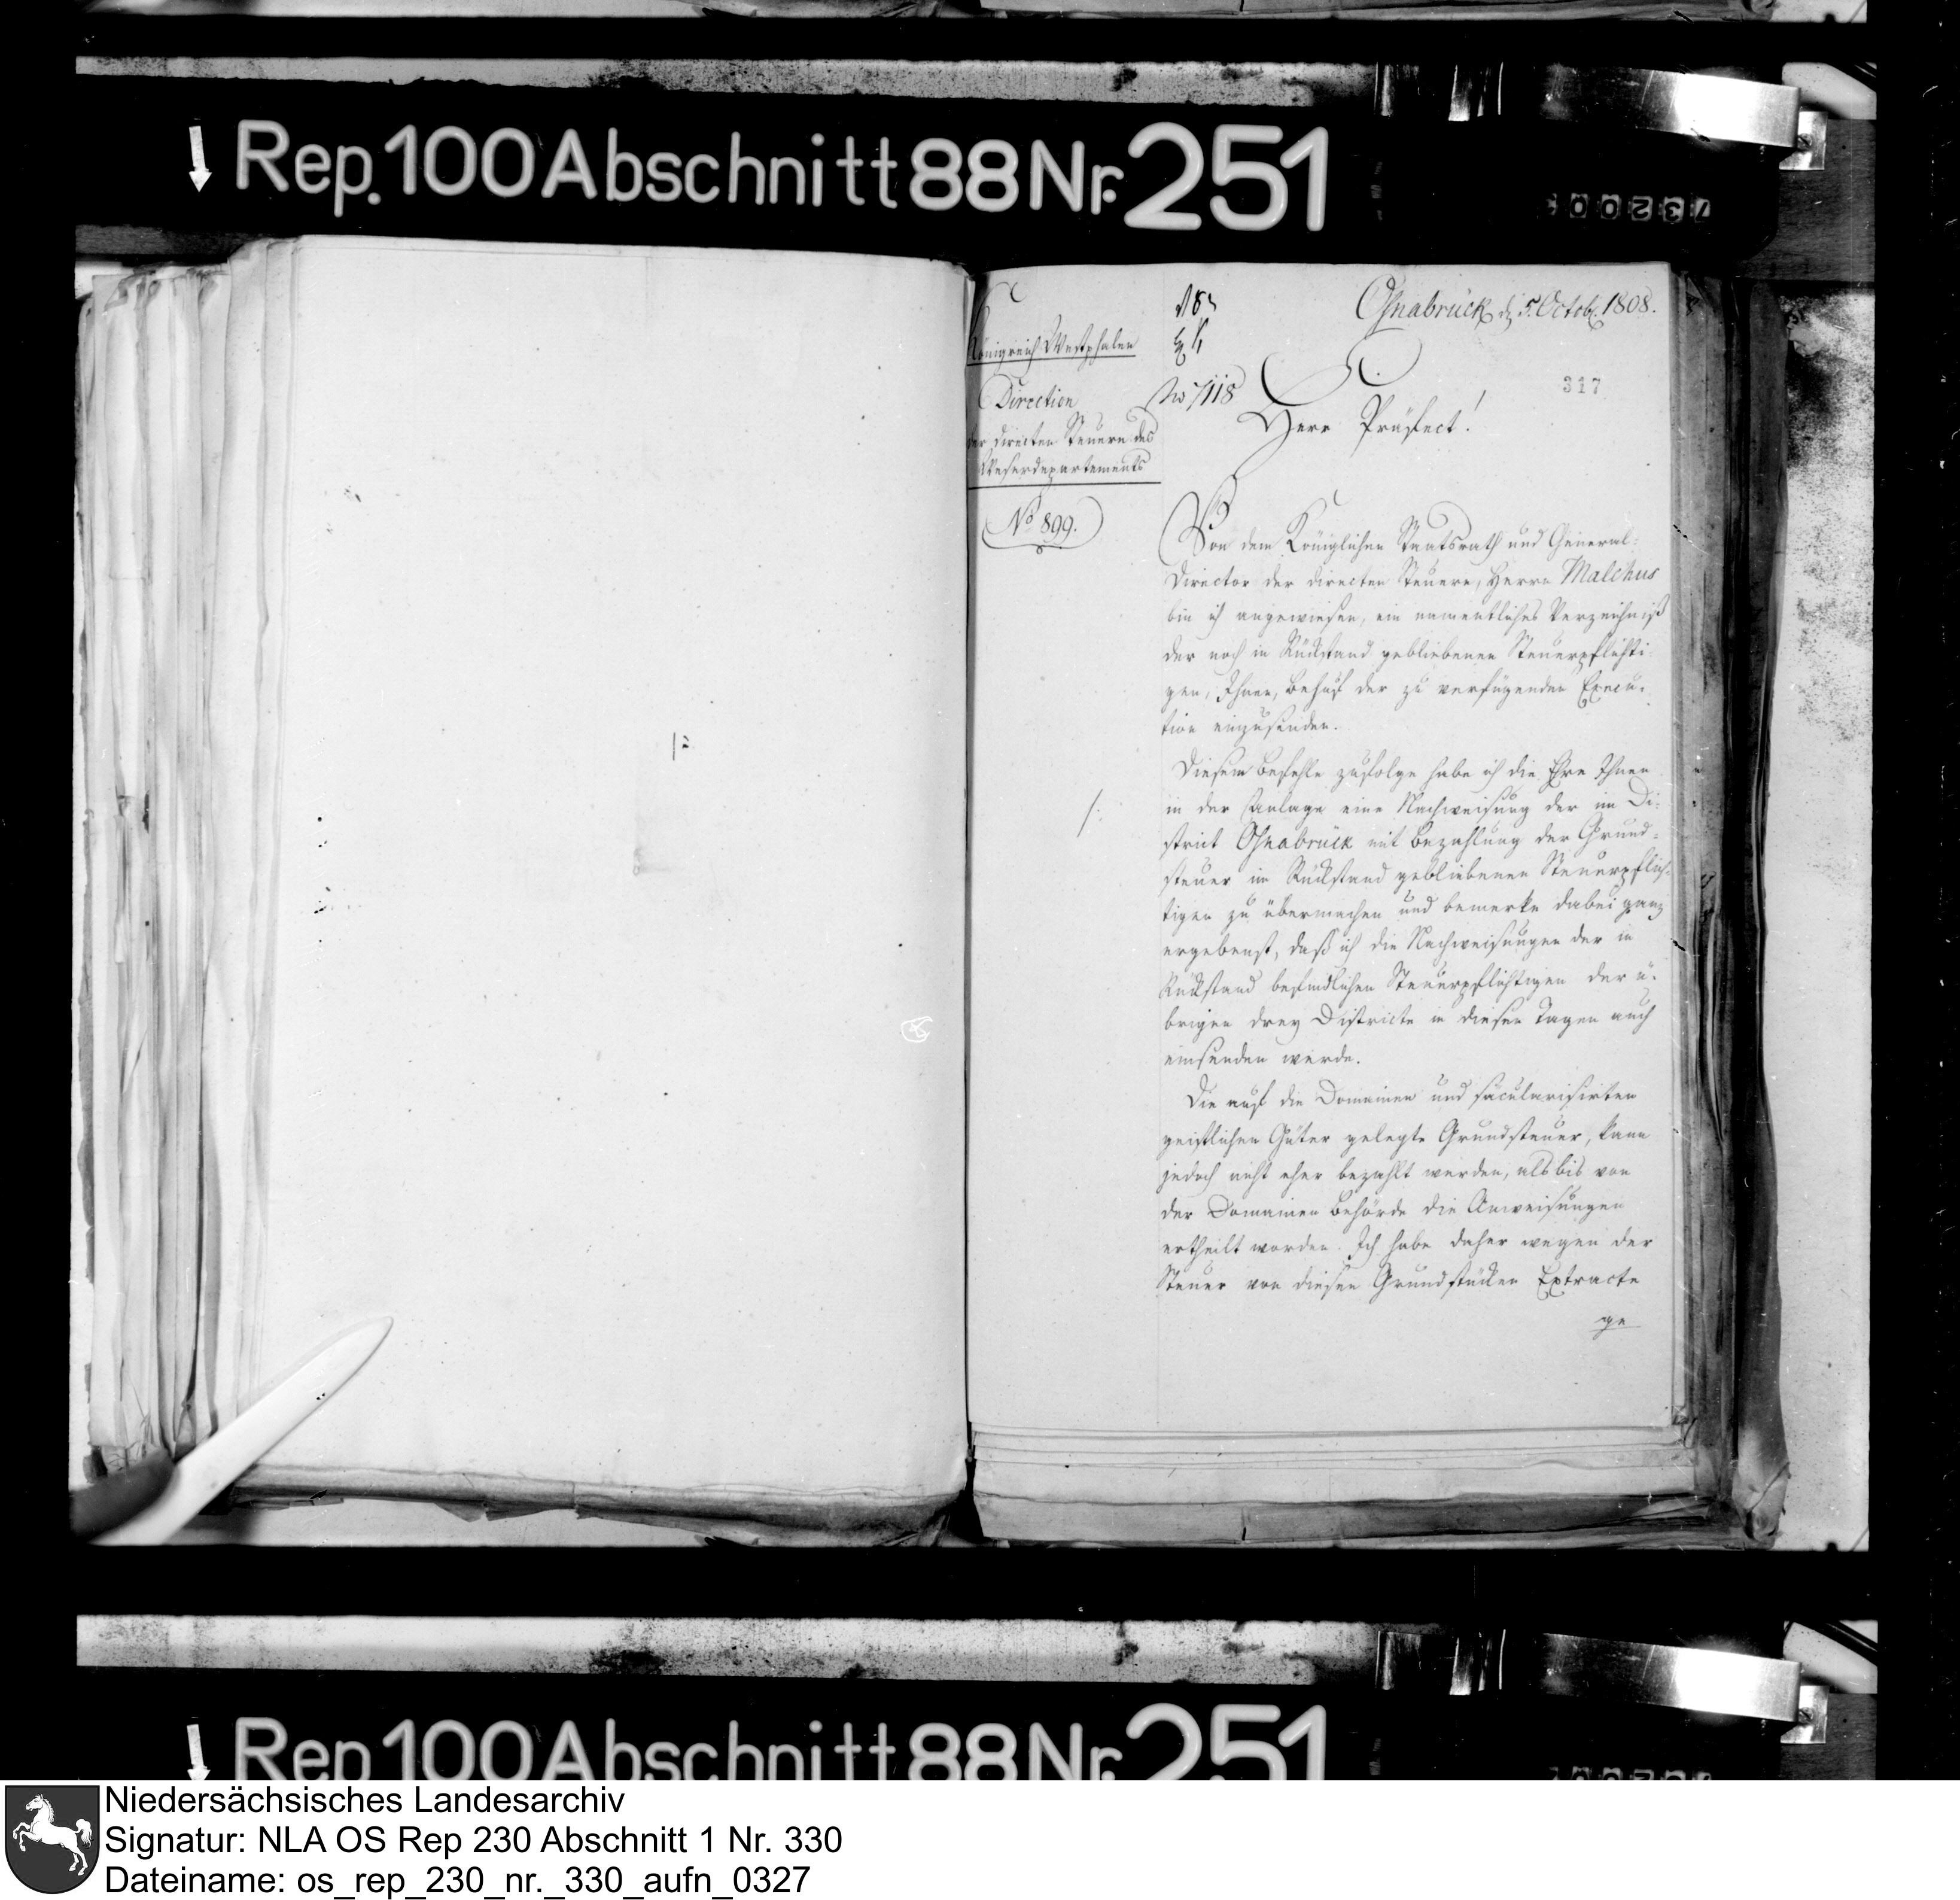 Rep. 100 Abschnitt 88 Nr. 251
Königreich Westphalen
Direction
der directen Steuern des
Weserdepartements
No 899.
No 7118
Osnabrück, d. 5. Octob. 1808.
317
Herr Präfect!
Von dem Königlichen Staatsrath und General-
Director der directen Steuern, Herrn Malchus
bin ich angewiesen, ein namentliches Verzeichniß
der noch in Rückstand gebliebenen Steuerpflichti-
gen, Ihnen, behuf der zu verfügenden Execu-
tion einzusenden.
Diesem Befehle zufolge habe ich die Ehre Ihnen
in der Anlage eine Nachweisung der im Di-
strict Osnabrück mit Bezahlung der Grund-
steuer im Rückstand gebliebenen Steuerpflich-
tigen zu übermachen und bemerke dabei ganz
ergebenst, daß ich die Nachweisungen der in
Rückstand befindlichen Steuerpflichtigen der ü-
brigen drey Districte in diesen Tagen auch
einsenden werde.
Die auf die Domainen und säcularisirten
geistlichen Güter gelegte Grundsteuer, kann
jedoch nicht eher bezahlt werden, als bis von
der Domainen Behörde die Anweisungen
ertheilt worden. Ich habe daher wegen der
Steuer von diesen Grundstücken Extracte
ge
Rep. 100 Abschnitt 88 Nr. 251
Niedersächsisches Landesarchiv
Signatur: NLA OS Rep 230 Abschnitt 1 Nr. 330
Dateiname: os_rep_230_nr._330_aufn_0327